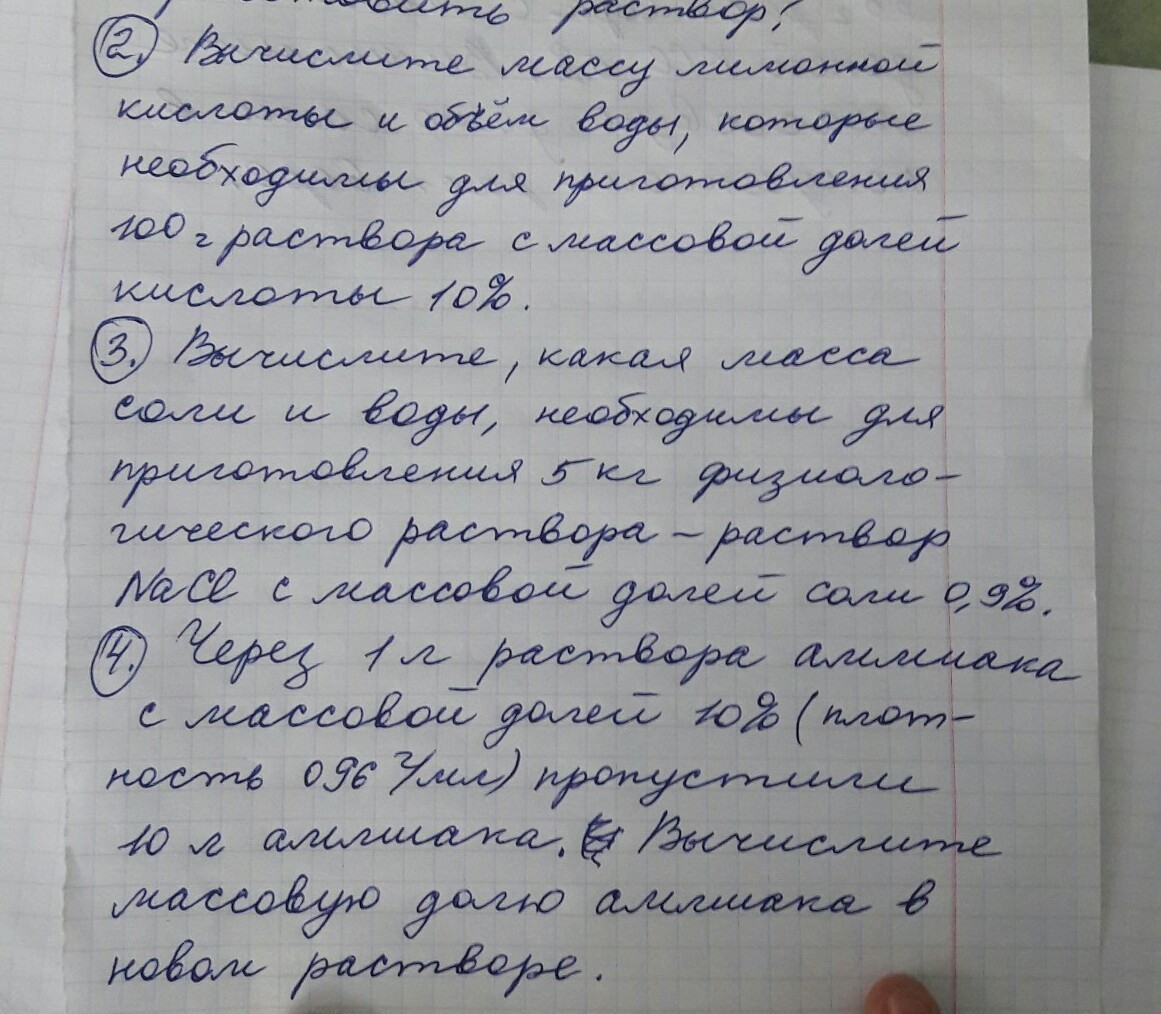 раствор?
2. Вычислите массу лимонной
кислоты и объём воды, которые
необходимы для приготовления
100 г раствора с массовой долей
кислоты 10%.
3. Вычислите, какая масса
соли и воды, необходимы для
приготовления 5 кг физиоло-
гического раствора – раствор
NaCl с массовой долей соли 0,9%.
4. Через 1 л раствора аммиака
с массовой долей 10% (плот-
ность 096 г/мл) пропустили
10 л аммиака. Вычислите
массовую долю аммиака в
новом растворе.